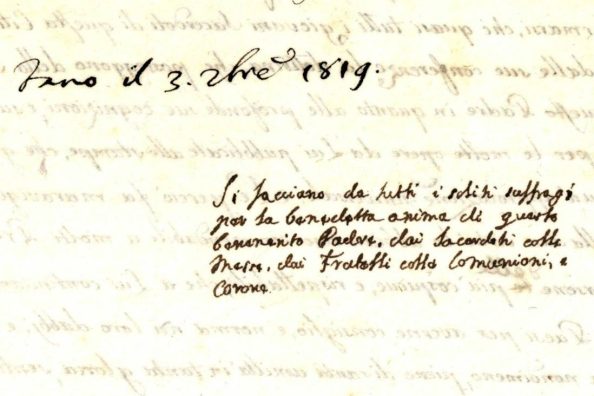 Fano il 3. 9bre 1819.
Si facciano da tutti i soliti suffragj
per la benedetta anima di questo
benemerito Padre, dai Sacerdoti colle
Messe, dai Fratelli colle Comunioni, e
Corone.